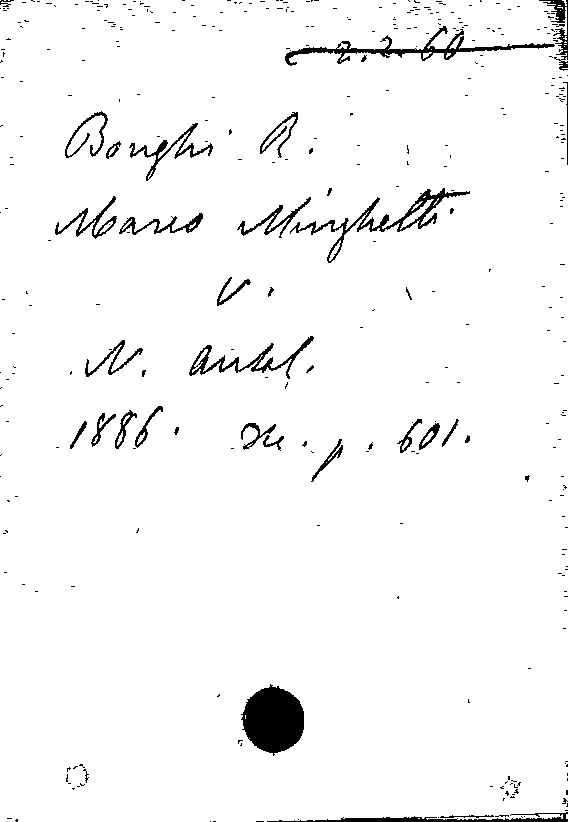 2.2.60
Bonghi R.
Marco Minghetti.
V.
N. Antol.
1886. XII. p. 601.